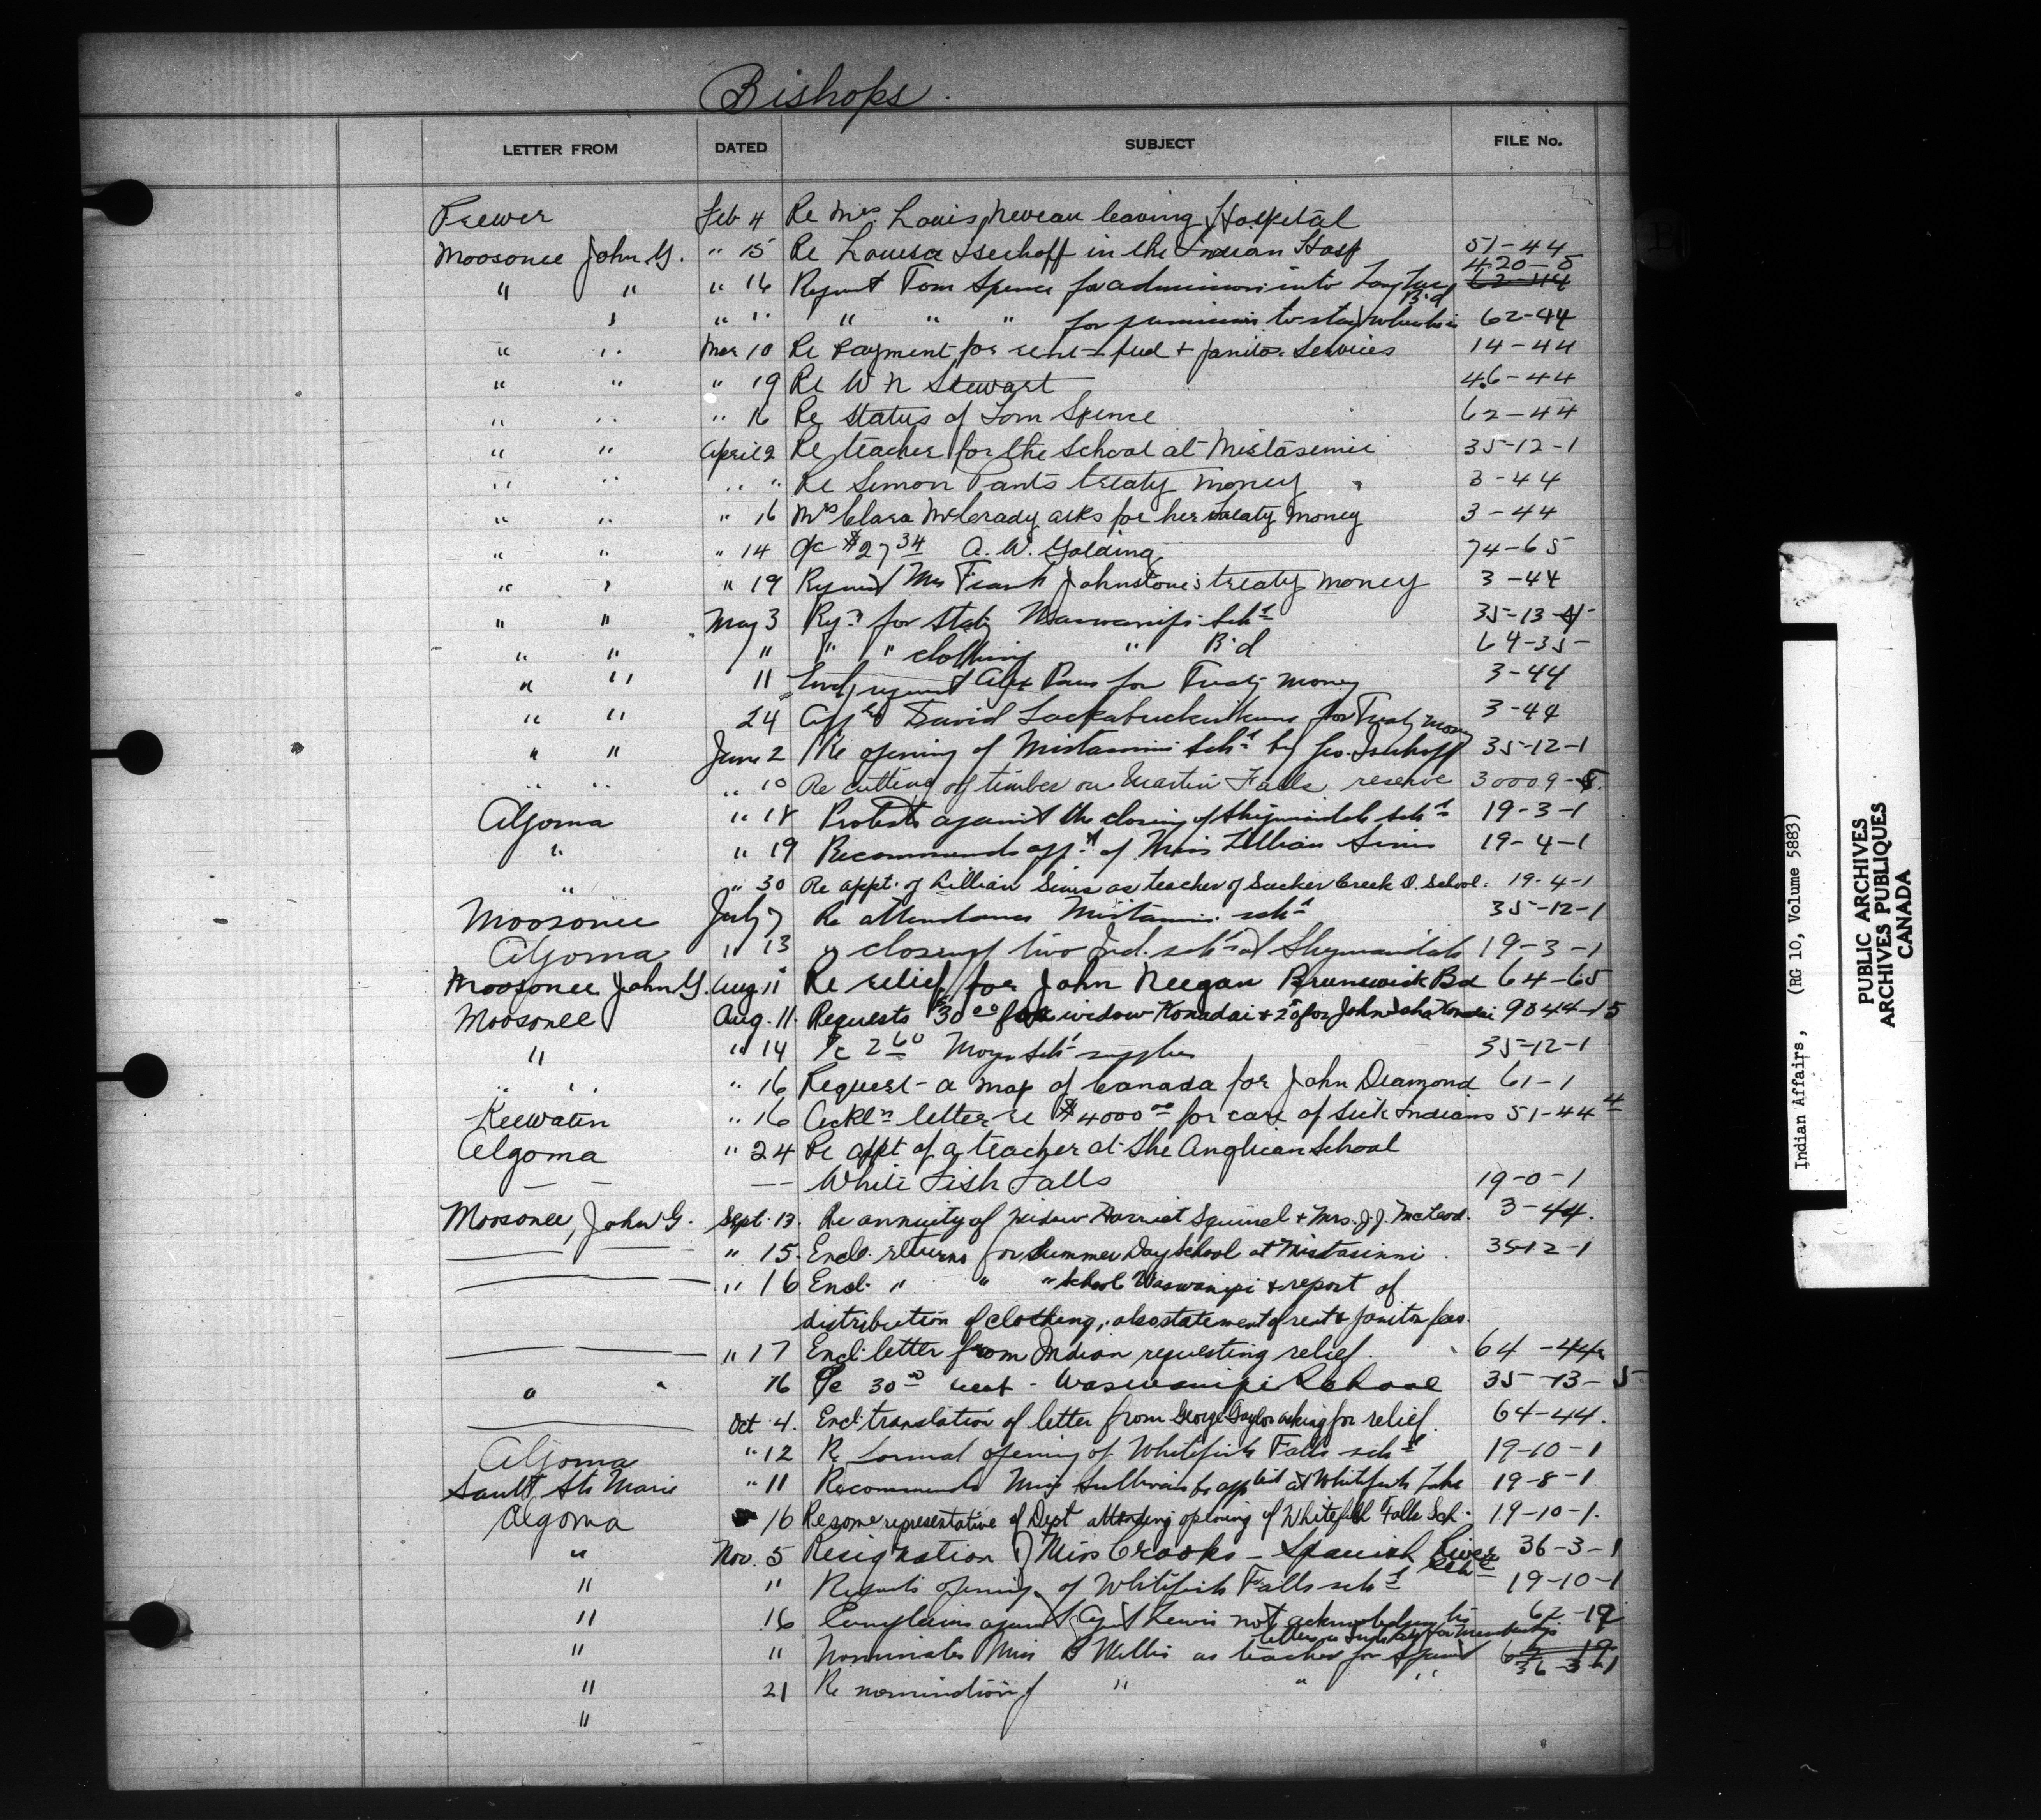 Bishops.
LETTER FROM DATED SUBJECT FILE No.
Feb 4 Re Mrs. Louis Neveau leaving Hospital
Moosonee John G. " 15 Re Louisa Iserhoff in the Indian Hosp 51-44
420-5
" " " 16 Request Tom Spence for admission into Long Lac Bd 62-44
" " " " " " for permission to stay 62-44
" " Mar 10 Re payment for rent - fuel + janitor services 14-44
" " " 19 Re W N Stewart 46-44
" " " 16 Re status of Tom Spence 62-44
" " April 2 Re teacher for the school at Mistassinni 35-12-1
" " " " Re Simon Pants treaty money 3-44
" " " 16 Mrs Clara McCrady asks for her treaty money 3-44
" " " 14 a/c $27 34 A. W. Golding 74-65
" " " 19 Request Mrs Frank Johnstone's treaty money 3-44
" " May 3 Reqn for Staty Waswanipi Schl 35-13-
" " " " " clothing " Bd 64-35-
" " 11 Encl request Alex for Treaty money 3-44
" " 24 David for Treaty money 3-44
" " June 2 Re opening of Mistassini Schl by Geo. Iserhoff 35-12-1
" " " 10 Re cutting of timber on Martin Falls reserve 30009-5.
Algoma " 18 Protests against the closing of Sheguiandah schl 19-3-1
" " 19 Recommends appt of Miss Lillian Sims 19-4-1
" " 30 Re appt. of Lillian Sims as teacher of Sucker Creek D. School. 19-4-1
Moosonee July 7 Re attendance Mistassini schl 35-12-1
Algoma " 13 " closing two Ind. schls at Sheguiandah 19-3-1
Moosonee John G. Aug 11 Re relief for John Neegan Brunswick Bd 64-65
Moosonee Aug. 11. Requests $30 00 for widow Konadai + 25 for John 9044-15
" " 14 a/c 2 60 schl supplies 35-12-1
" " " 16 Request - a map of Canada for John Diamond 61-1
Keewatin " 16 Ackln letter re $4000 00 for care of sick Indians 51-44 4
Algoma " 24 Re appt of a teacher at the Anglican School
— — — White Fish Falls 19-0-1
Moosonee, John G. Sept. 13. Re annuity of widow Harriet Squirrel + Mrs. J.J. McLeod. 3-44.
" 15. Encl. returns for Summer Day School at Mistassinni. 35-12-1
" 16 Encl. " " " School Waswanipi + report of
distribution of clothing, also statement of rent & janitor fees.
" 17 Encl. letter from Indian requesting relief. 64-44
" " 16 a/c 30 00 rent - Waswanipi School 35-13-5
Oct 4. Encl. translation of letter from George Taylor asking for relief. 64-44.
Algoma " 12 Re formal opening of Whitefish Falls schl 19-10-1
Sault Ste Marie " 11 Recommends Miss Sullivan be apptd at Whitefish Lake 19-8-1
Algoma 16 Re some representative of Dept attending opening of Whitefish Falls Sch. 19-10-1.
" Nov. 5 Resignation of Miss Crooks - Spanish River Schl 36-3-1
" " Reports opening of Whitefish Falls schl 19-10-1
" 16 Complains against Agent Lewis not acknowledging his 62-19
letters
" " Nominates Miss B Willis as teacher for Spanish 62-19
36-3-1
" 21 Re nomination of " " "
"
Indian Affairs, (RG 10, Volume 5883)
PUBLIC ARCHIVES
ARCHIVES PUBLIQUES
CANADA